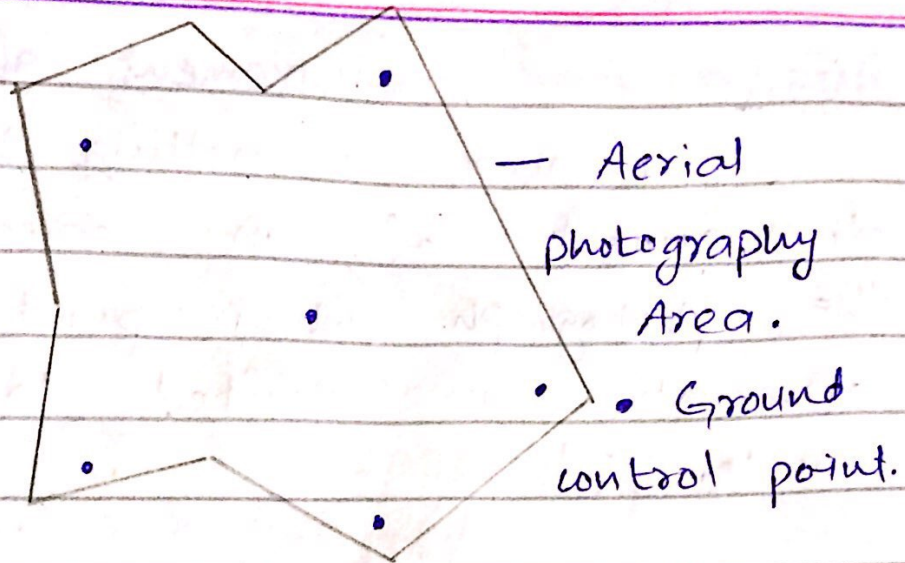 — Aerial
photography
Area.
• Ground
control point.